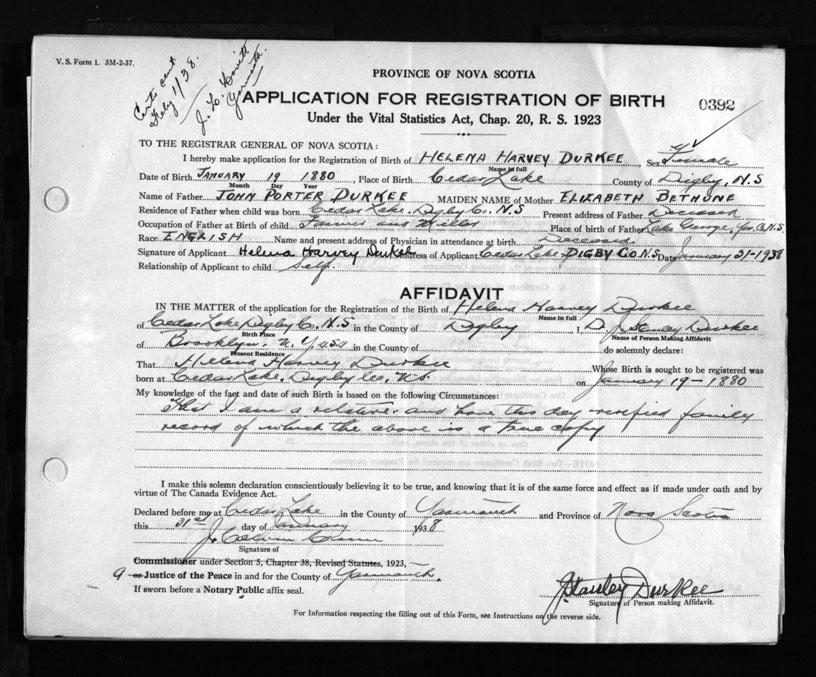 V. S. Form 1. 3M-2-37.
Certs sent
Feby 1/38.
J. L. Lovitt
Yarmouth.
PROVINCE OF NOVA SCOTIA
APPLICATION FOR REGISTRATION OF BIRTH
0392
Under the Vital Statistics Act, Chap. 20, R. S. 1923
TO THE REGISTRAR GENERAL OF NOVA SCOTIA:
I hereby make application for the Registration of Birth of HELENA HARVEY DURKEE Sex Female
Name in full
Date of Birth JANUARY 19 1880 Place of Birth Cedar Lake County of Digby, N.S
Month Day Year
Name of Father JOHN PORTER DURKEE MAIDEN NAME of Mother ELIZABETH BETHUNE
Residence of Father when child was born Cedar Lake, Digby Co. N.S Present address of Father Deceased
Occupation of Father at Birth of Child Farmer and Miller Place of birth of Father Lake George, Yar. Co. N.S.
Race ENGLISH Name and present address of Physician in attendance at birth Deceased.
Signature of Applicant Helena Harvey Durkee Address of Applicant Cedar Lake DIGBY CO N.S. Date January 31-1938
Relationship of Applicant to child Self.
AFFIDAVIT
IN THE MATTER of the application for the Registration of the Birth of Helena Harvey Durkee
Name in full
of Cedar Lake Digby Co. N.S in the County of Digby I, D. J. Stanley Durkee
Birth Place Name of Person Making Affidavit
of Brooklyn, N.Y. USA do solemnly declare:
Present Residence
That Helena Harvey Durkee Whose Birth is sought to be registered was
born at Cedar Lake, Digby Co, N.S. on January 19-1880
My knowledge of the fact and date of such Birth is based on the following Circumstances:
That I am a relative and have this day verified family
record of which the above is a true copy
I make this solemn declaration conscientiously believing it to be true, and knowing that it is of the same force and effect as if made under oath and by
virtue of The Canada Evidence Act.
Declared before me at Cedar Lake in the County of Yarmouth and Province of Nova Scotia
this 31st day of January 1938
J. Calvin
Signature of
Commissioner under Section 5, Chapter 38, Revised Statutes, 1923,
a or Justice of the Peace in and for the County of Yarmouth.
If sworn before a Notary Public affix seal.
J. Stanley Durkee
Signature of Person making Affidavit.
For Information respecting the filling out of this Form, see Instructions on the reverse side.